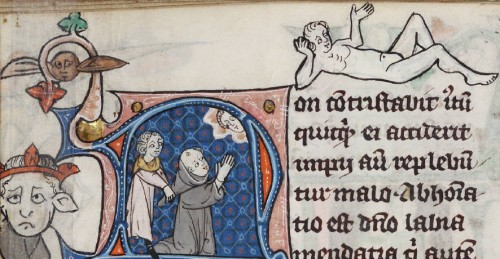 on cõtristabit iustũ
quicq̃ ei acciderit
impij aũ replebũ
tur malo. Abhoĩa
tio est dño labia
mendatia q̃ autẽ